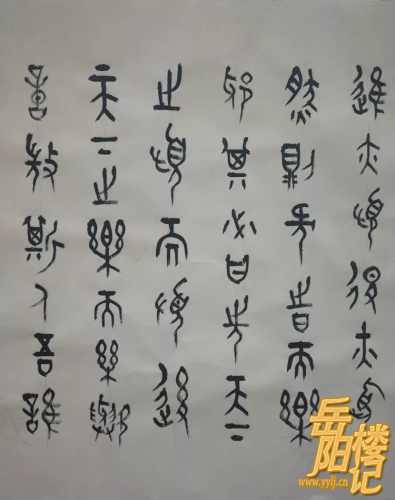 進亦憂退亦憂
然則何時而樂
耶其必曰先天下
之憂而憂後
天下之樂而樂歟
噫微斯人吾誰
岳阳楼记
www.yylj.cn